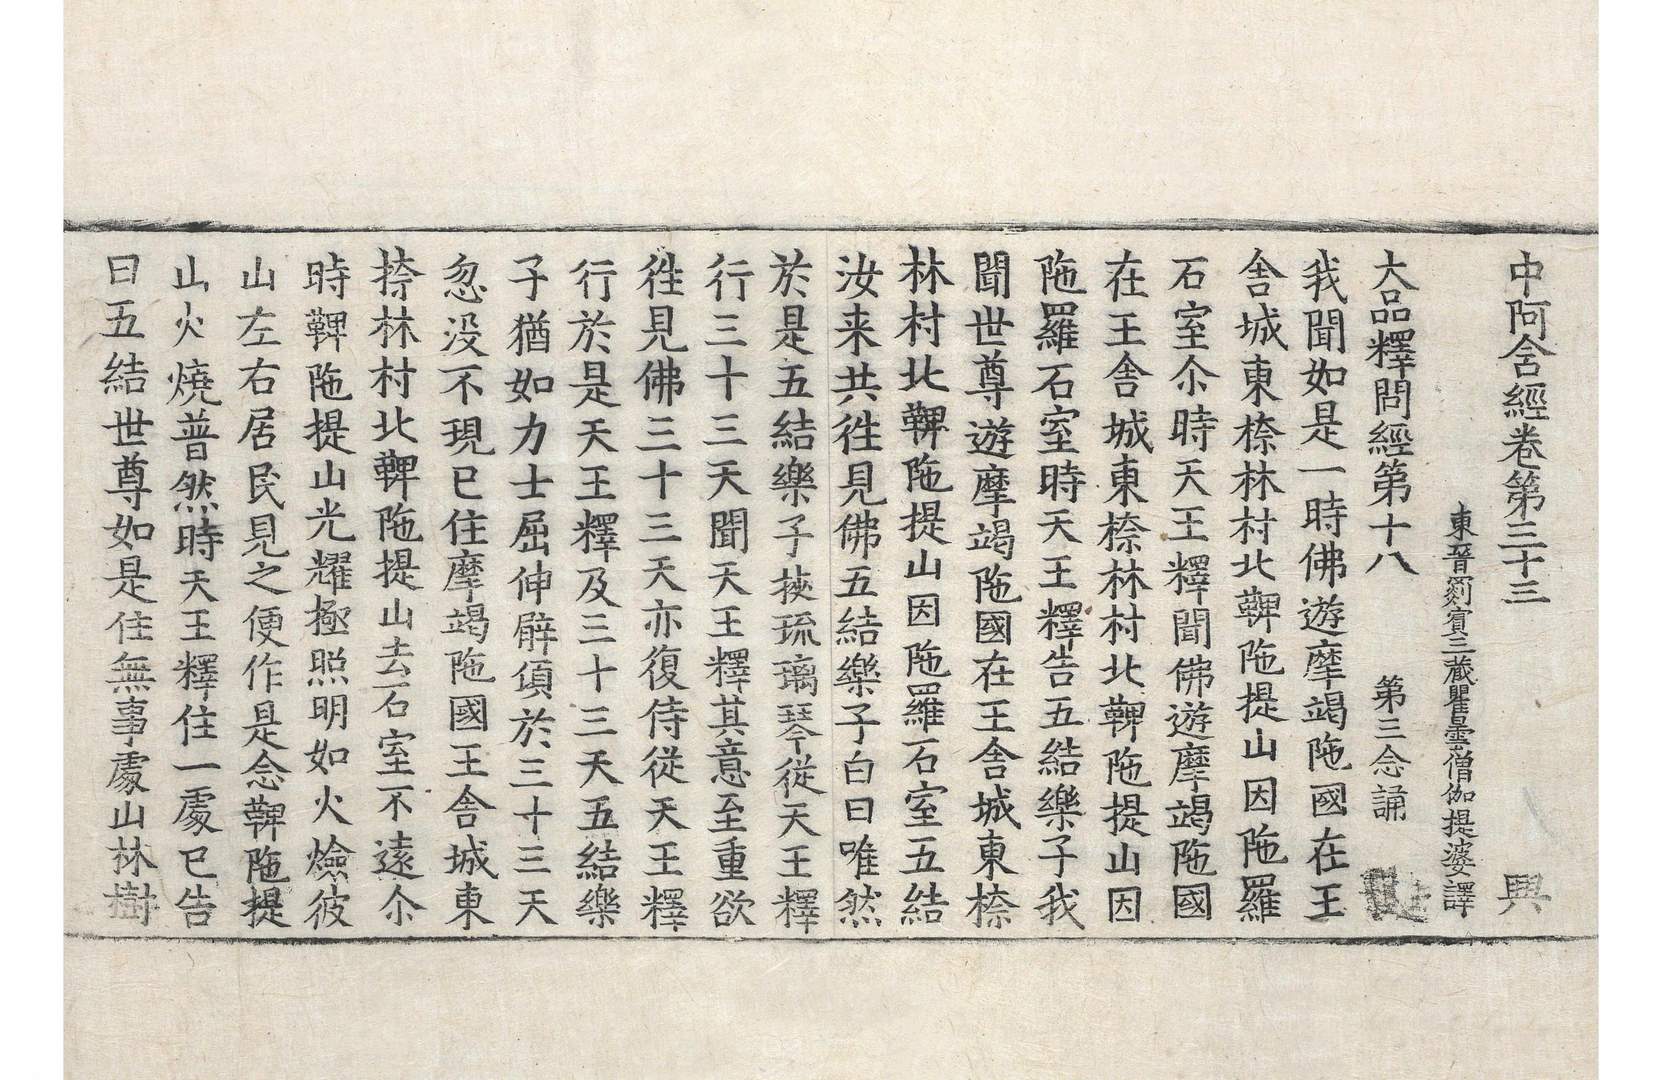 中阿含經卷第三十三 興
東晉罽賓三藏瞿曇僧伽提婆譯
大品釋問經第十八 第三念誦
我聞如是一時佛遊摩竭陁國在王
舍城東㮈林村北鞞陁提山因陁羅
石室尒時天王釋聞佛遊摩竭陁國
在王舍城東㮈林村北鞞陁提山因
陁羅石室時天王釋告五結樂子我
聞世尊遊摩竭陁國在王舍城東㮈
林村北鞞陁提山因陁羅石室五結
汝来共徃見佛五結樂子白曰唯然
於是五結樂子挾琉璃琴従天王釋
行三十三天聞天王釋其意至重欲
徃見佛三十三天亦復侍従天王釋
行於是天王釋及三十三天五結樂
子猶如力士屈伸臂頃於三十三天
忽没不現已住摩竭陁國王舍城東
㮈林村北鞞陁提山去石室不遠尒
時鞞陁提山光耀極照明如火㷿彼
山左右居民見之便作是念鞞陁提
山火燒普然時天王釋住一處已告
曰五結世尊如是住無事處山林樹